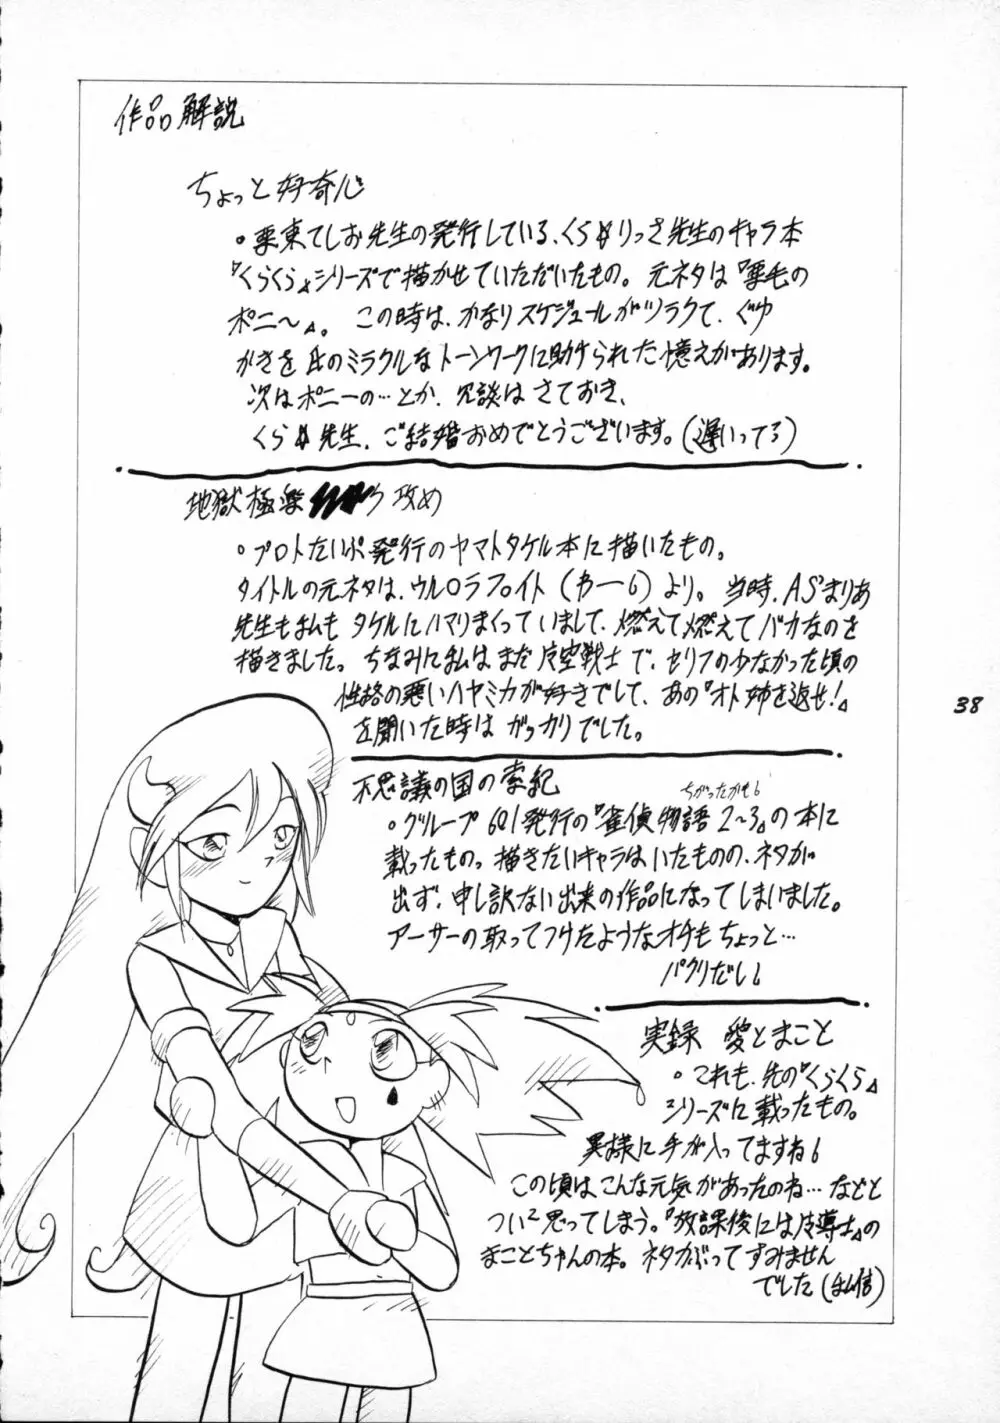 作品解説
ちょっと好奇心
・栗東てしお先生の発行している、くら☆りっさ先生のキャラ本
『くらくら』シリーズで描かせていただいたもの。元ネタは『栗毛の
ポニ〜』。この時は、かなりスケジュールがツラクて、ぐゆ
がさを氏のミラクルなトーンワークに助けられた憶えがあります。
次はポニーの…とか、冗談はさておき、
くら☆先生、ご結婚おめでとうございます。(遅いってろ)
地獄極楽 攻め
・プロトたいぷ発行のヤマトタケル本に描いたもの。
タイトルの元ネタは、ウルロラファイト(わー6)より。当時、AS'まりあ
先生も私もタケルにハマりまくっていまして、燃えて燃えてバカなのを
描きました。ちなみに私はまだ 空戦士で、セリフの少なかった頃の
性格の悪いハヤミカが好きでして、あの『オト姉を返せ!』
を聞いた時はガッカリでした。
不思議の国の索紀
ちがったかも6
・グループ601発行の『雀偵物語2〜3』の本に
載ったもの。描きたいキャラはいたものの、ネタが
出ず、申し訳ない出来の作品になってしまいました。
アーサーの取ってつけたようなオチもちょっと…
パクリだし6
38
実録 愛とまこと
・これも、先の『くらくら』
シリーズに載ったもの。
異様に手が入ってますね6
この頃はこんな元気があったのね…などと
つい2思ってしまう。『放課後には 導士』の
まことちゃんの本。ネタかぶってすみません
でした(私信)